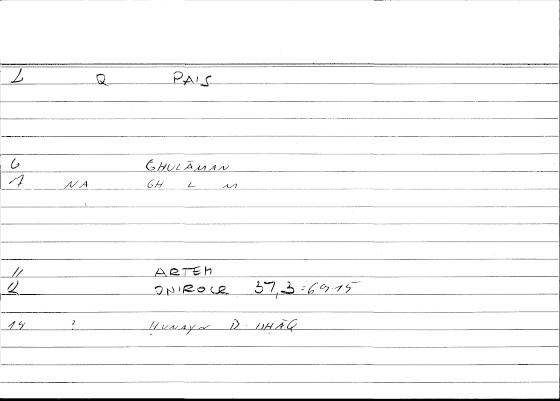 1 Q PAIS
6 GHULĀMAN
7 NA GH L M
11 ARTEM
12 ONIROCR 37,3 = 69.15
14 ? ḤUNAYN D. ISḤĀQ